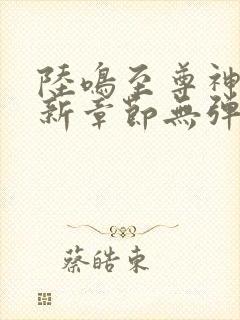 陸鳴至尊神
新章節無彈
蔡皓東